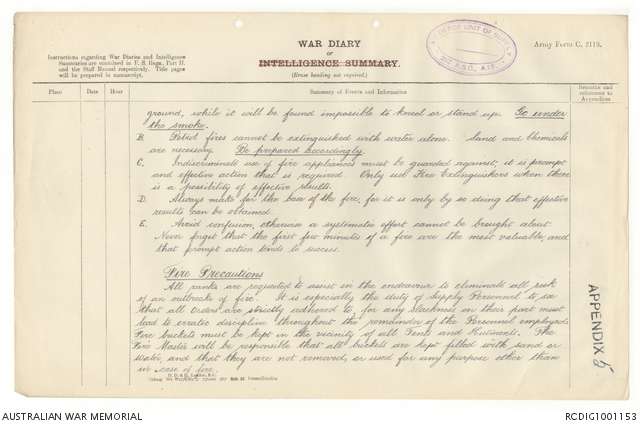 WAR DIARY
or
INTELLIGENCE SUMMARY.
(Erase heading not required.)
Army Form C. 2118.
Instructions regarding War Diaries and Intelligence
Summaries are contained in F. S. Regs., Part II.
and the Staff Manual respectively. Title pages
will be prepared in manuscript.
DEPOT UNIT OF SUPPLY
A.S.C., A.I.F.
Place
Date
Hour
Summary of Events and Information
Remarks and
references to
Appendices
ground, while it will be found impossible to kneel or stand up. Go under
the smoke.
B. Petrol fires cannot be extinguished with water alone. Sand and Chemicals
are necessary. Be prepared accordingly.
C. Indiscriminate use of fire appliances must be guarded against; it is prompt
and effective action that is required. Only use Fire Extinguishers when there
is a possibility of effective results.
D. Always make for the base of the fire, for it is only by so doing that effective
results can be obtained.
E. Avoid confusion, otherwise a systematic effort cannot be brought about.
Never forget that the first few minutes of a fire are the most valuable, and
that prompt action tends to success.
Fire Precautions
All ranks are requested to assist in the endeavour to eliminate all risk
of an outbreak of fire. It is especially the duty of Supply Personnel to see
that all orders are strictly adhered to for any slackness on their part must
lead to erratic discipline throughout the remainder of the Personnel employed.
Fire buckets must be kept in the vicinity of all Tents and Hutments. The
Fire Master will be responsible that all buckets are kept filled with sand or
water, and that they are not removed, or used for any purpose other than
in case of fire.
APPENDIX 5
D. D. & L., London, E.C.
AUSTRALIAN WAR MEMORIAL
RCDIG1001153